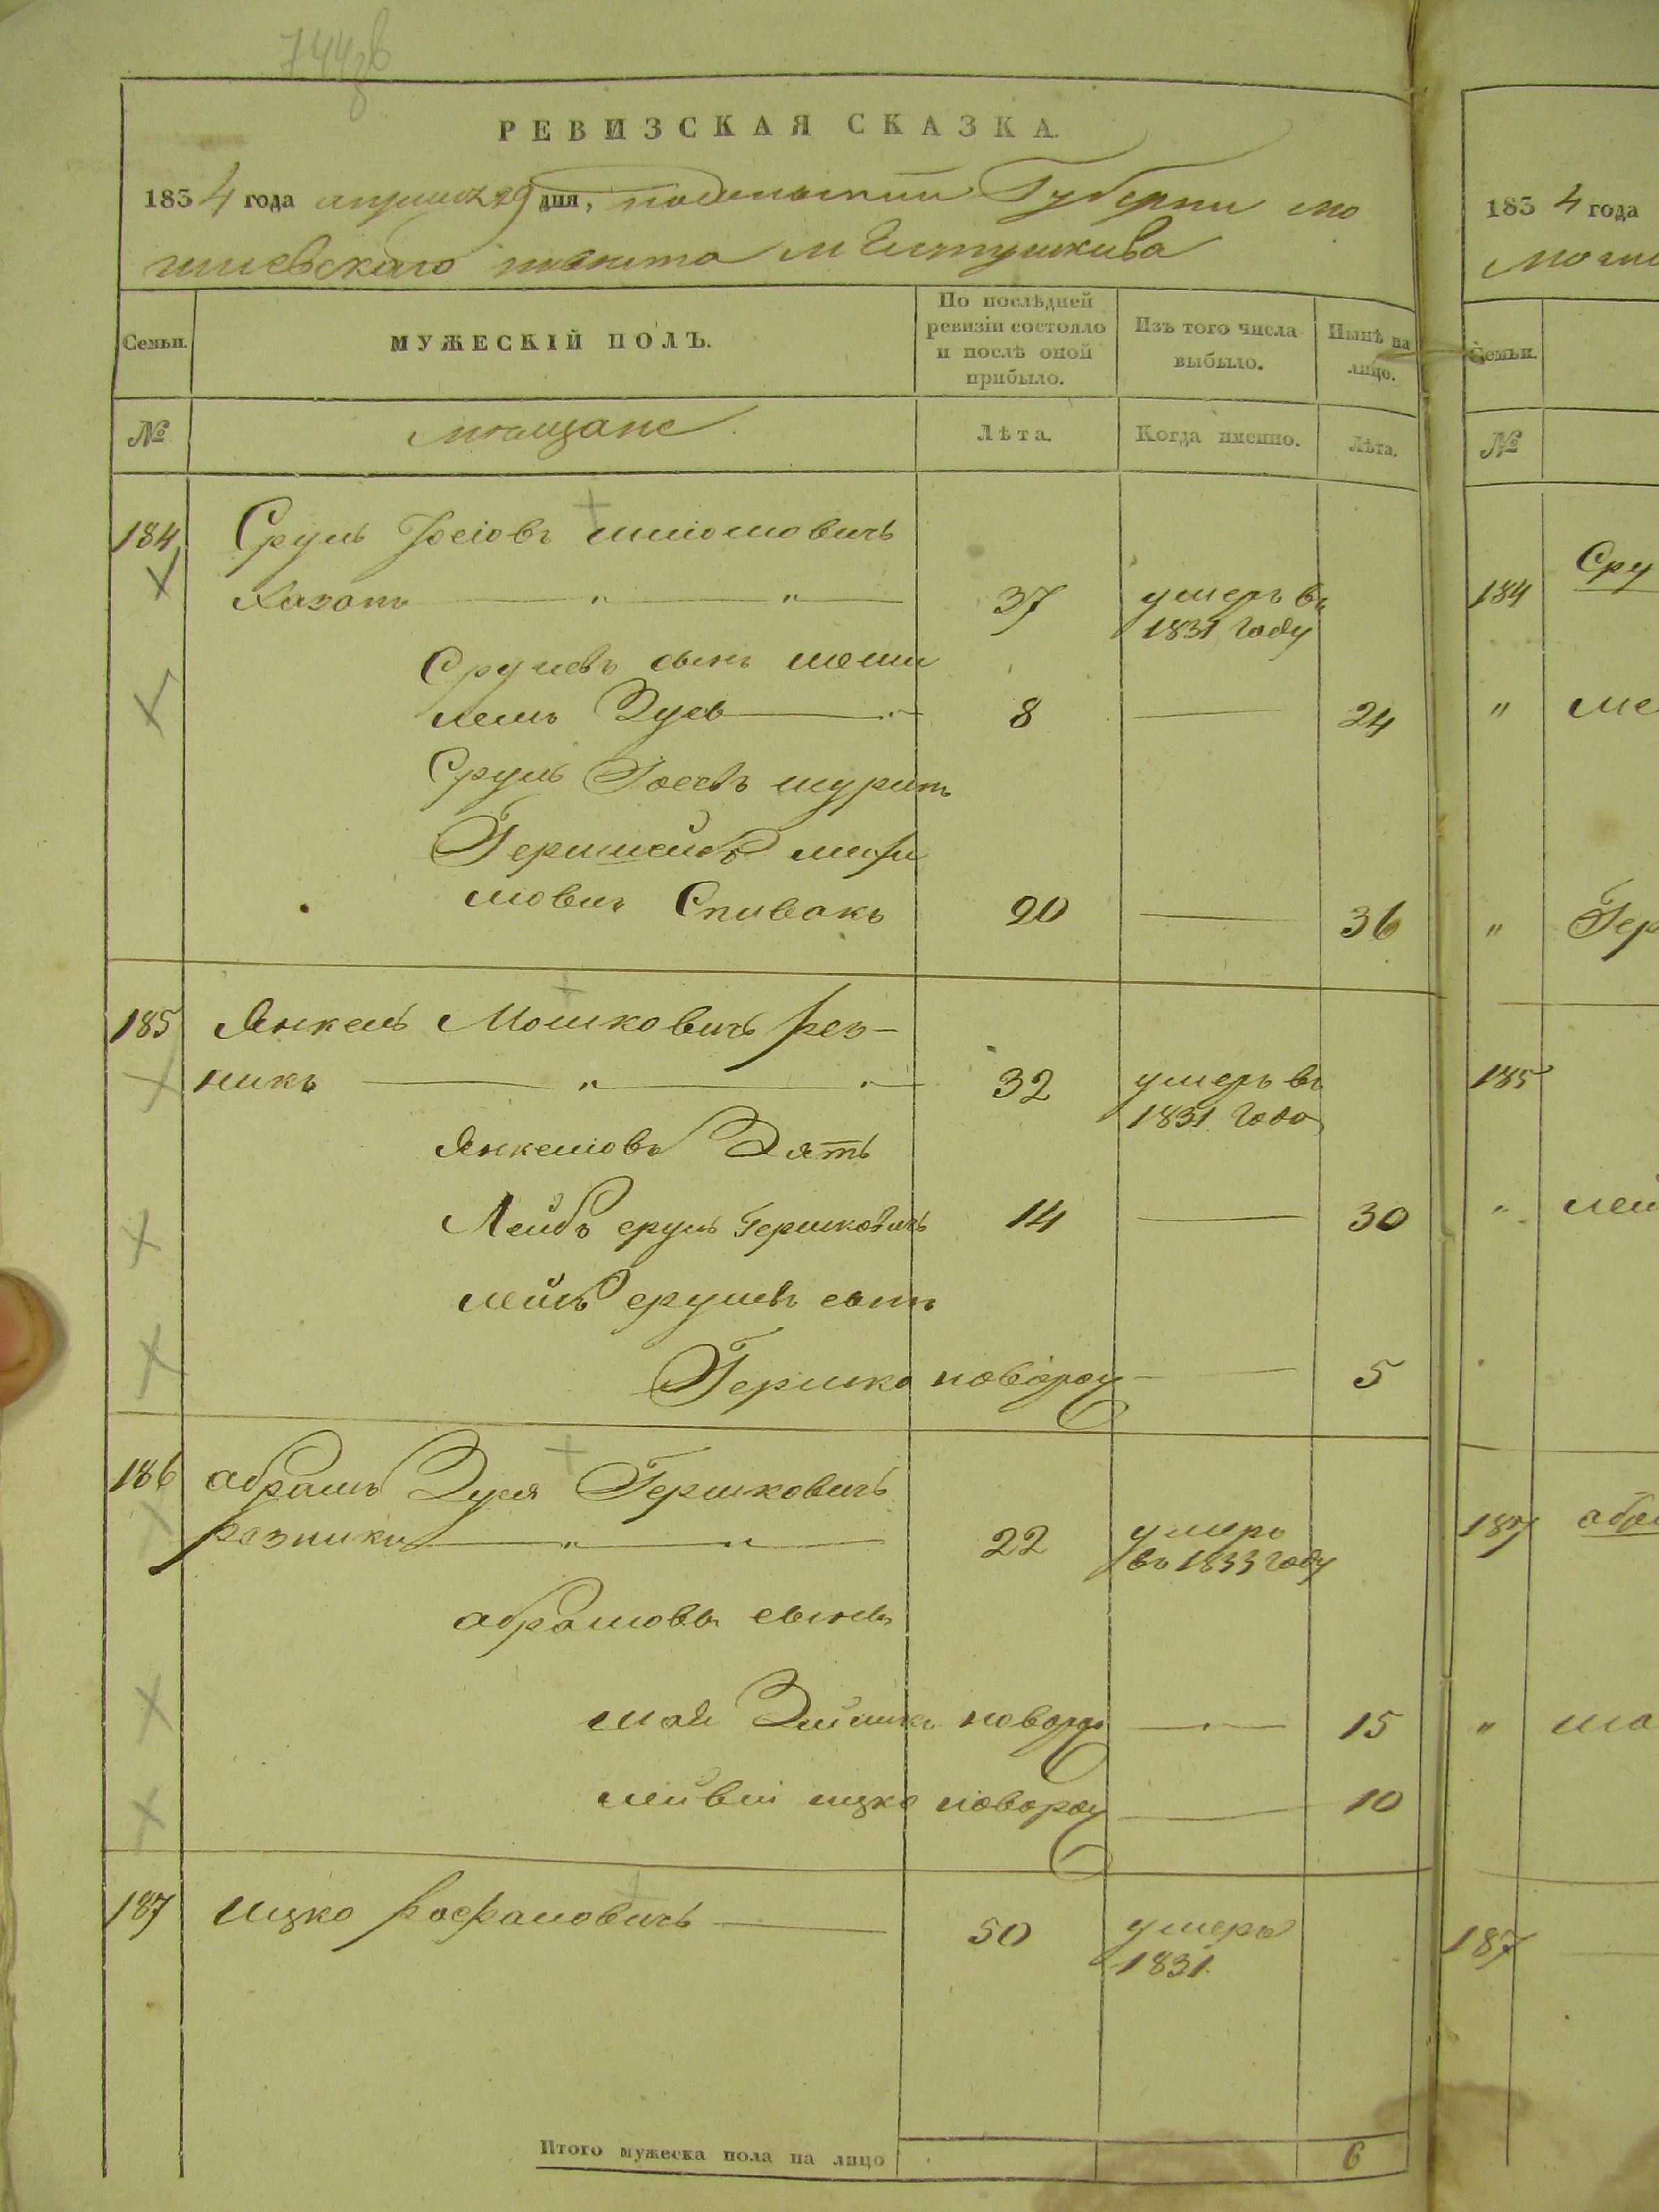 РЕВИЗСКАЯ СКАЗКА.
1834 года апреля 29 дня, подольской Губерни мо
гилевскаго повѣта м
Семьи. МУЖЕСКІЙ ПОЛЪ. По послѣдней ревизіи состояло и послѣ оной прибыло. Изъ того числа выбыло. Нынѣ на лицо.
№ мещане Лѣта. Когда именно. Лѣта.
184 Сруль Іосіовъ шліомовичь
Хазанъ 37 умеръ въ 1831 году
Срулевъ сынъ
Зусь 8 24
Сруль Іосевъ шуринъ
Гершлейбъ
мовичъ Спивакъ 20 36
185 Янкель Мошковичь рез-
никъ 32 умеръ въ 1831 года
Янкеліовъ Зять
Лейбъ сруль Гершковичь 14 30
лейбъ срулевъ сынъ
Гершко новорож 5
186 абрамъ Зуся Гершковичь
резникъ 22 умеръ въ 1833 году
абрамовы сыны
новорож 15
ицко новорож 10
187 ицко рафаловичь 50 умеръ 1831.
Итого мужеска пола на лицо 6
1834 года
Семьи.
№
184 Сру
" ме
" Гер
185
" лей
187 абра
"
187